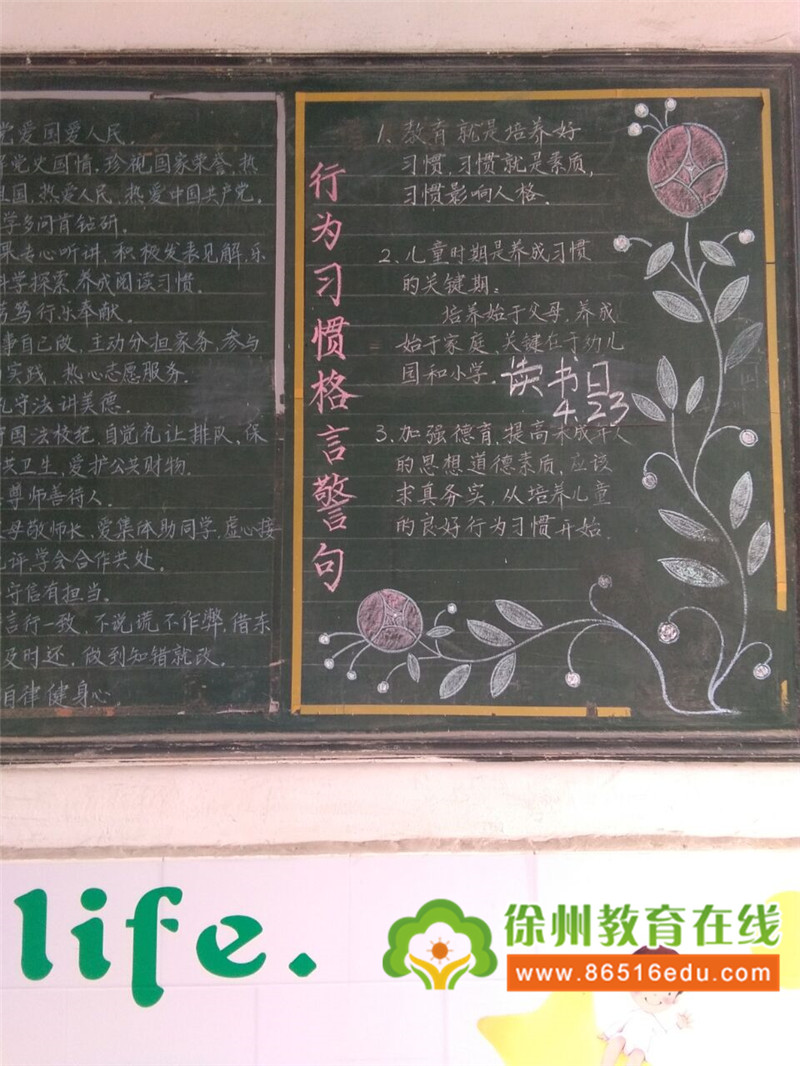 党爱国爱人民。
党史国情，珍视国家荣誉，热
祖国，热爱人民，热爱中国共产党。
学多问肯钻研。
果专心听讲，积极发表见解，乐
科学探索，养成阅读习惯。
劳笃行乐奉献。
事自己做，主动分担家务，参与
实践，热心志愿服务。
礼守法讲美德。
国法校纪，自觉礼让排队，保
共卫生，爱护公共财物。
尊师善待人。
母敬师长，爱集体助同学，虚心接
评，学会合作共处。
守信有担当。
言行一致，不说谎不作弊，借东
及时还，做到知错就改。
自律健身心。
行为习惯格言警句
1、教育就是培养好
习惯，习惯就是素质，
习惯影响人格。
2、儿童时期是养成习惯
的关键期：
培养始于父母，养成
始于家庭、关键在于幼儿
园和小学。
读书日
4.23
3、加强德育，提高未成年人
的思想道德素质，应该
求真务实，从培养儿童
的良好行为习惯开始。
life.
徐州教育在线
www.86516edu.com